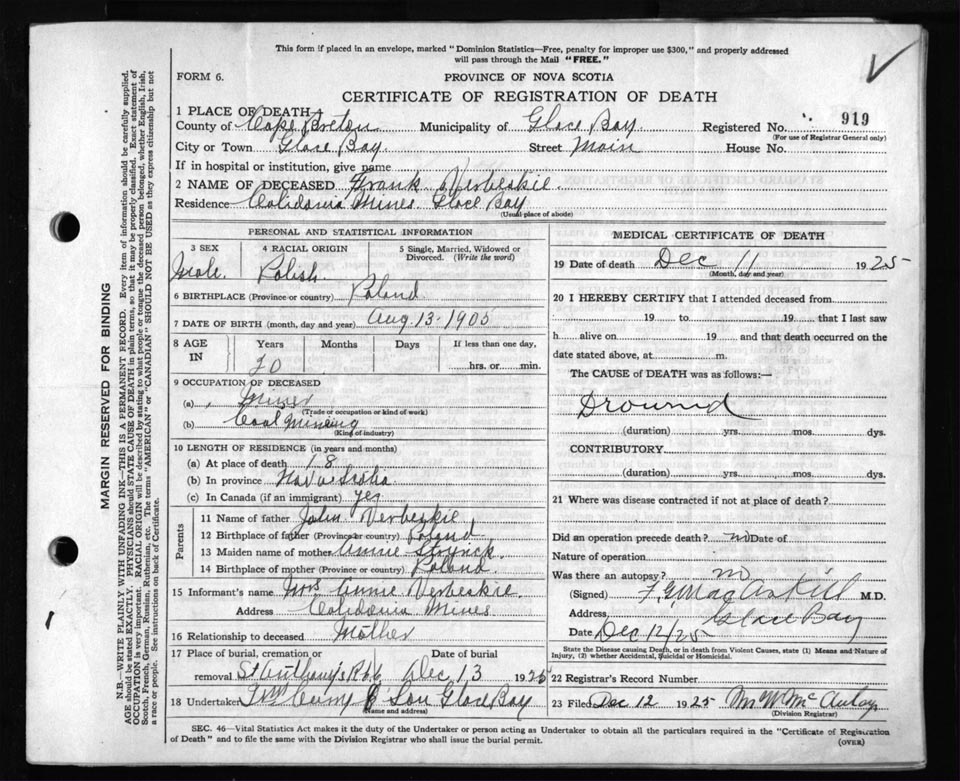 This form if placed in an envelope, marked "Dominion Statistics—Free, penalty for improper use $300," and properly addressed
will pass through the Mail "FREE."
FORM 6.
PROVINCE OF NOVA SCOTIA
CERTIFICATE OF REGISTRATION OF DEATH
1 PLACE OF DEATH
County of Cape Breton Municipality of Glace Bay Registered No. 919
(For use of Registrar General only)
City or Town Glace Bay Street Main House No.
If in hospital or institution, give name
2 NAME OF DECEASED Frank Verbeskie
Residence Calidonia Mines Glace Bay
(Usual place of abode)
PERSONAL AND STATISTICAL INFORMATION
3 SEX 4 RACIAL ORIGIN 5 Single, Married, Widowed or
Divorced. (Write the word)
Male. Polish
6 BIRTHPLACE (Province or country) Poland
7 DATE OF BIRTH (month, day and year) Aug 13-1905
8 AGE IN Years Months Days If less than one day,
20 hrs. or min.
9 OCCUPATION OF DECEASED
(a) Miner
(Trade or occupation or kind of work)
(b) Coal Mining
(Kind of industry)
10 LENGTH OF RESIDENCE (in years and months)
(a) At place of death 18
(b) In province Nova Scotia
(c) In Canada (if an immigrant) yes
Parents
11 Name of father John Verbeskie
12 Birthplace of father (Province or country) Poland
13 Maiden name of mother Annie
14 Birthplace of mother (Province or country) Poland
15 Informant's name Mrs Annie Verbeskie
Address Calidonia Mines
16 Relationship to deceased Mother
17 Place of burial, cremation or Date of burial
removal St Anthony's Dec 13 1925
18 Undertaker & Son Glace Bay
(Name and address)
MEDICAL CERTIFICATE OF DEATH
19 Date of death Dec 11 1925
(Month, day and year)
20 I HEREBY CERTIFY that I attended deceased from
19 to 19 that I last saw
h alive on 19 and that death occurred on the
date stated above, at m.
The CAUSE of DEATH was as follows:—
Drowned
(duration) yrs. mos. dys.
CONTRIBUTORY
(duration) yrs. mos. dys.
21 Where was disease contracted if not at place of death?
Did an operation precede death? no Date of
Nature of operation
Was there an autopsy? no
(Signed) M.D.
Address Glace Bay
Date Dec 12/25
State the Disease causing Death, or in death from Violent Causes, state (1) Means and Nature of
Injury, (2) whether Accidental, Suicidal or Homicidal.
22 Registrar's Record Number
23 Filed Dec 12 1925 M. W. McAulay
(Division Registrar)
SEC. 46—Vital Statistics Act makes it the duty of the Undertaker or person acting as Undertaker to obtain all the particulars required in the "Certificate of Registration
of Death" and to file the same with the Division Registrar who shall issue the burial permit.
(OVER)
MARGIN RESERVED FOR BINDING
N.B.—WRITE PLAINLY WITH UNFADING INK—THIS IS A PERMANENT RECORD. Every item of information should be carefully supplied.
AGE should be stated EXACTLY. PHYSICIANS should STATE CAUSE OF DEATH in plain terms, so that it may be properly classified. Exact statement of
OCCUPATION is very important. RACIAL ORIGIN will be described by stating to what people or tongue the deceased person belonged, whether English, Irish,
Scotch, French, German, Russian, Ruthenian, etc. The terms "AMERICAN" or "CANADIAN" SHOULD NOT BE USED as they express citizenship but not
a race or people. See instructions on back of Certificate.